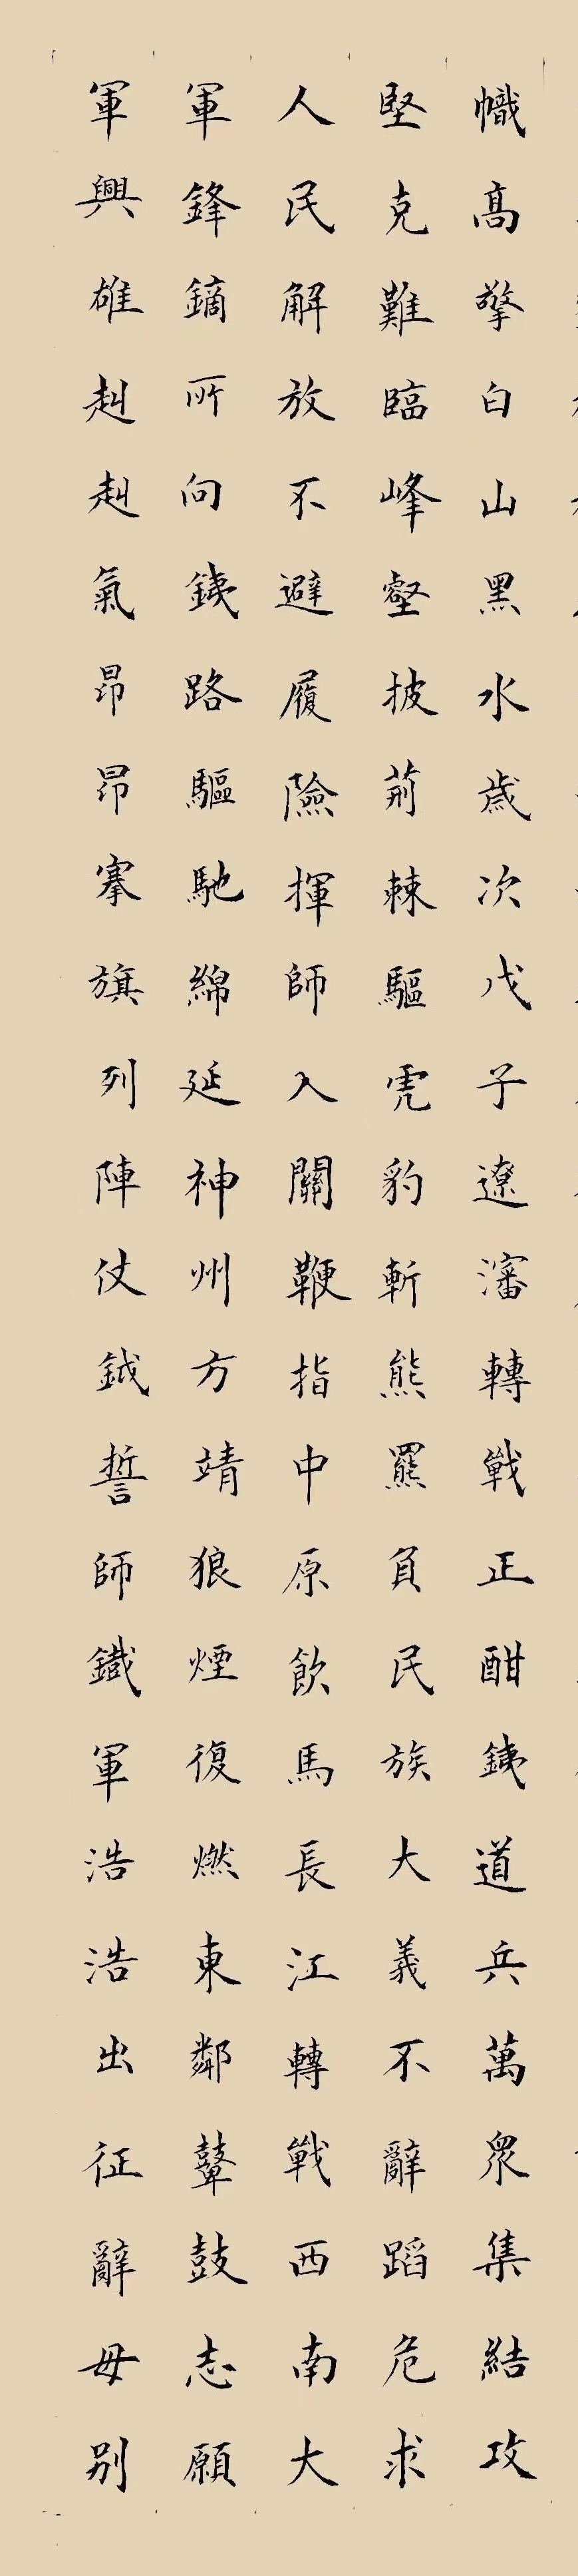 幟高擎白山黑水歲次戊子遼瀋轉戰正酣銕道兵萬眾集結攻
堅克難臨峰壑披荊棘驅虎豹斬熊羆負民族大義不辭蹈危求
人民解放不避履險揮師入關鞭指中原飲馬長江轉戰西南大
軍鋒鏑所向銕路驅馳綿延神州方靖狼煙復燃東鄰鼙鼓志願
軍興雄赳赳氣昂昂搴旗列陣仗鉞誓師鐵軍浩浩出征辭母別